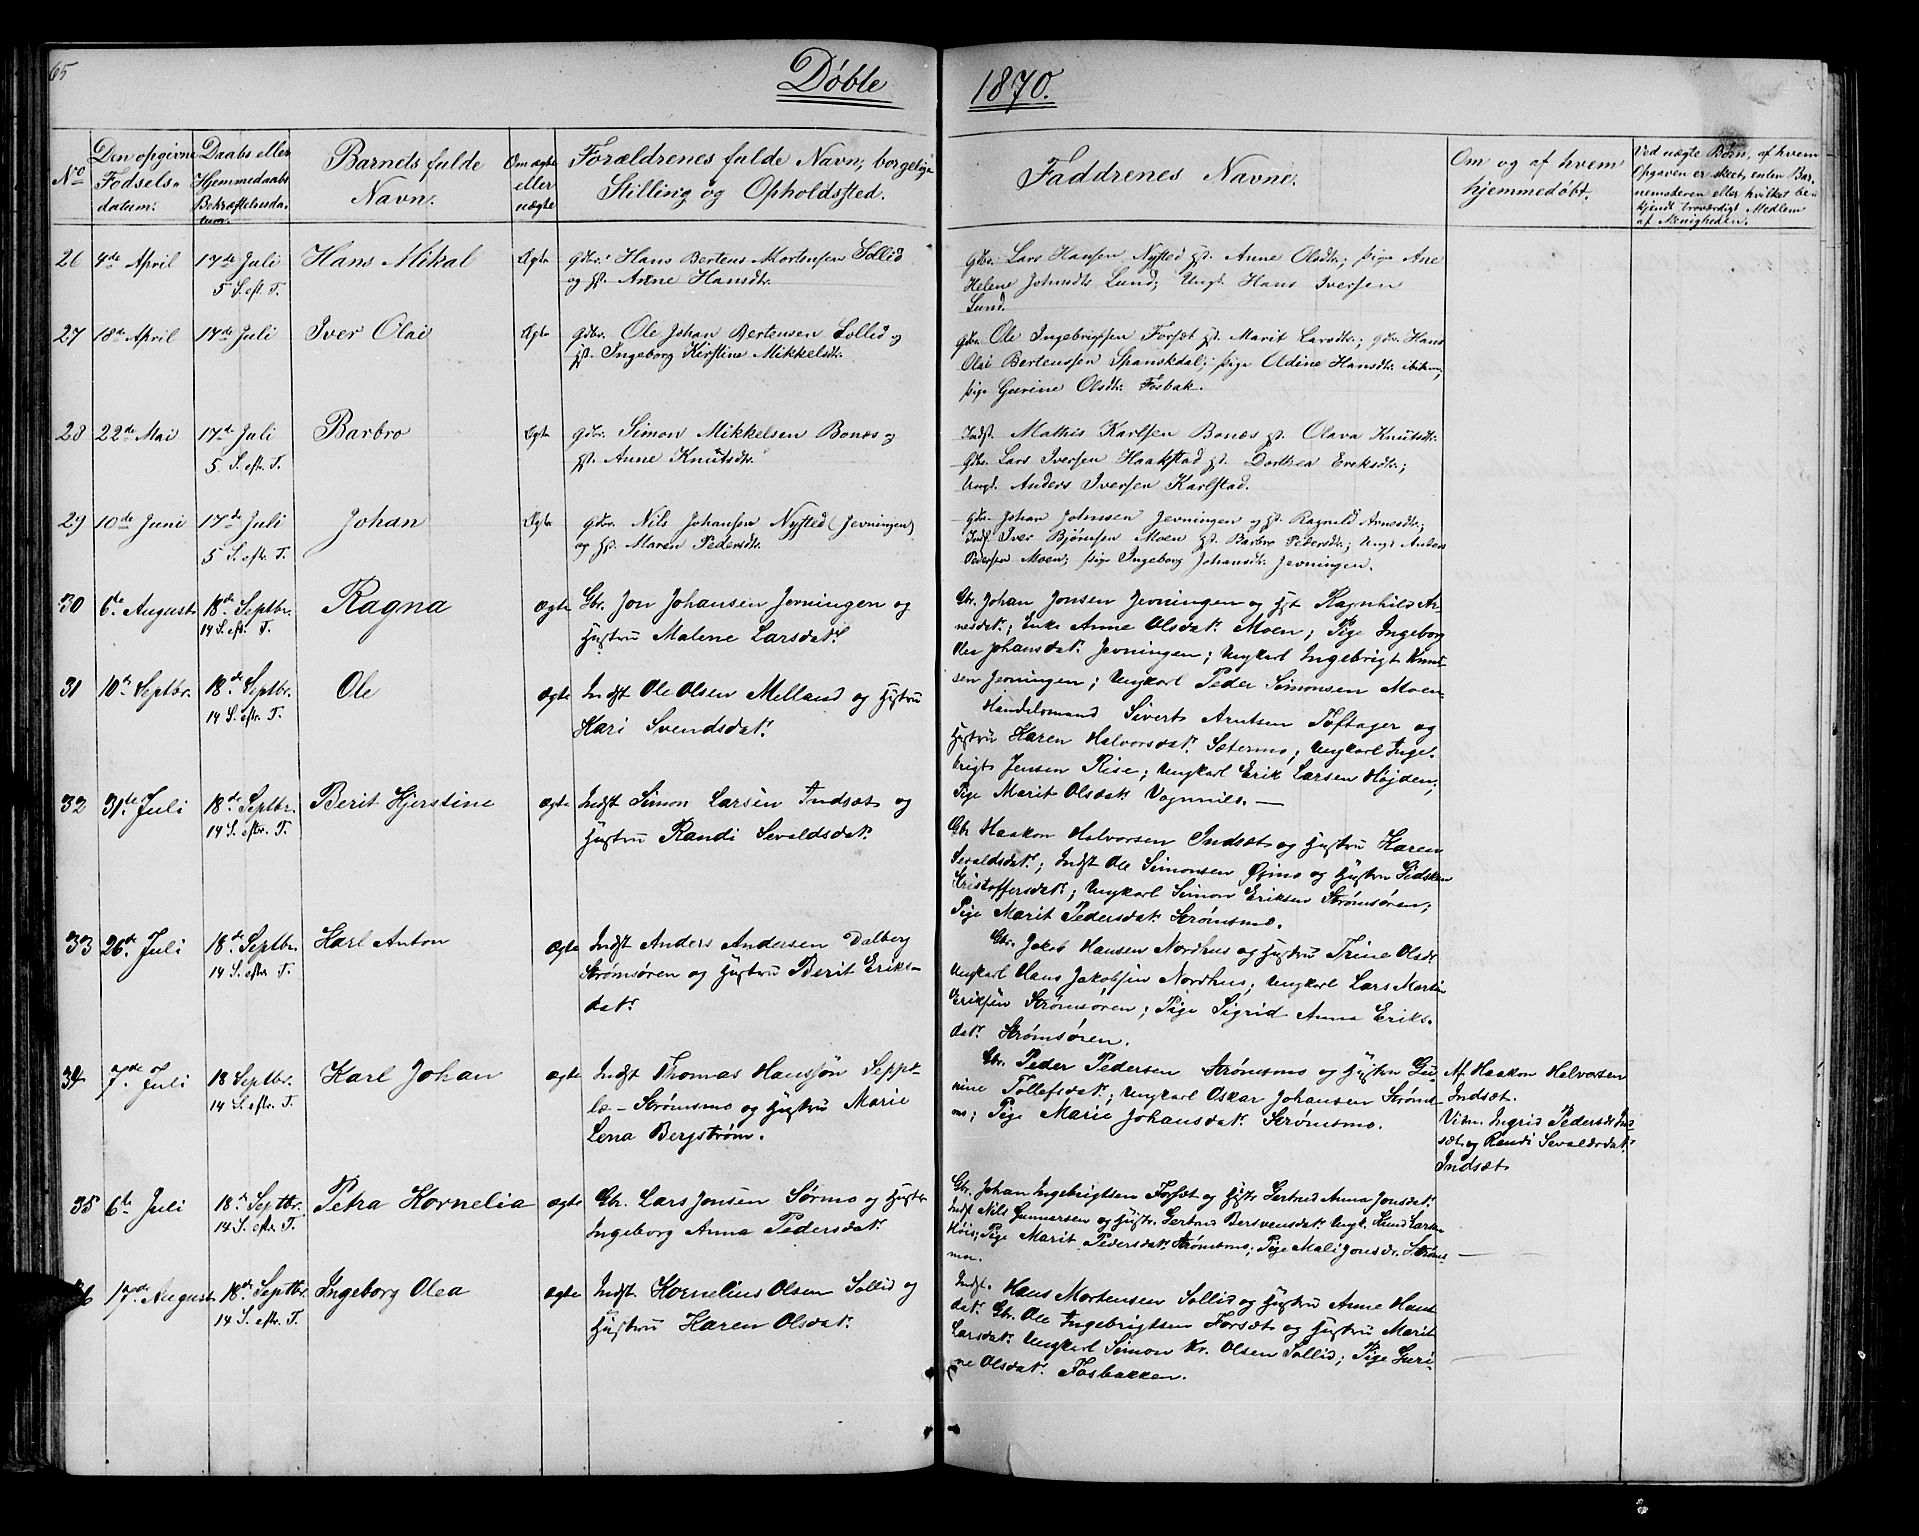 65
Døbte
1870.
No
Den opgivne
Fødsels-
datum:
Daabs eller
Hjemmedaabs
Bekræftelsesda-
tum.
Barnets fulde
Navn.
Om ægte
eller
uægte
Forældrenes fulde Navn, borgelige
Stilling og Opholdssted.
Faddrenes Navne.
Om og af hvem
hjemmedøbt.
Ved uægte Børn, af hvem
Opgaven er skeet, enten Bar-
nemoderen eller hvilket be-
kjendt troværdigt Medlem
af Menigheden.
26
4de April
17de Juli
5 S. eft. T.
Hans Mikal
Ægte
Gbr. Hans Bertens Mortensen Sollid
og H. Anne Hansdtr.
Gbr. Lars Hansen Nysted H. Anne Olsdtr; Pige Ane
Helene Johnsdtr Lund; Ungk. Hans Iversen
Lund.
27
18de April
17de Juli
Iver Olai
Ægte
Gbr. Ole Johan Bertensen Sollid og
H. Ingeborg Kirstine Mikkelsdtr.
Gbr. Ole Ingebrigtsen Forsæt H. Marit Larsdtr.; Gbr. Hans
Olai Bertensen Spanskdal; Pige Udine Hansdtr. ibidem;
Pige Gurine Olsdtr. Fosbak.
28
22de Mai
17de Juli
5 S. eftr. T.
Barbro
Ægte
Gbr. Simon Mikkelsen Bonæs og
H. Anne Knutsdtr.
Indst. Mathis Karlsen Bonæs H. Olava Knutsdtr.
Gbr. Lars Iversen Haakstad H. Dorthea Eriksdtr.;
Ungk. Anders Iversen Karlstad.
29
10de Juni
17de Juli
5 S. eftr. T.
Johan
Ægte
Gbr. Nils Johansen Nysted (Jevningen)
og H. Maren Pedersdtr.
Gbr. Johan Johnsen Jevningen og H. Ragnild Arnesdtr;
Inds. Iver Bjørnsen Moen H. Barbro Pedersdtr.; Ungk. Anders
Pedersen Moen; Pige Ingeborg Johansdtr. Jevningen.
30
6te August
18de Septbr.
14 S. eft. T.
Ragna
Ægte
Gbr. Jon Johansen Jevningen og
Hustru Malene Larsdatr.
Gbr. Johan Jonsen Jevningen og Hst. Ragnhild Ar-
nesdatr; Enke Anne Olsdatr. Moen; Pige Ingeborg
Johansdatr. Jevningen; Ungkarl Ingebrigt Knud-
sen Jevningen; Ungkarl Peder Simonsen Moen.
31
10de Septbr.
18de Septbr.
14 S. eftr. T.
Ole
ægte
Indst Ole Olsen Melland og Hustru
Kari Svendsdatr.
Handelsmand Sivert Arntsen Toftager og
Hustru Karen Halvorsdatr. Sætermo; Ungkarl Inge-
brigt Jensen Rise; Ungkarl Erik Larsen Højden;
Pige Marit Olsdatr. Vognmils. —
32
31te Juli
18de Septbr.
14 S. eftr. T.
Berit Hjerstine
ægte
Indst Simon Larsen Indsæt og
Hustru Randi Sevaldsdatr.
Gbr Haakon Halvorsen Indsæt og Hustru Karen
Sevaldsdatr.; Indst Ole Simonsen Øjmo og Hustru Gidsken
Kristoffersdatr; Ungkarl Simon Eriksen Strømsøren;
Pige Marit Pedersdatr. Strømsmo.
33
26de Juli
18de Septbr
14 S. eftr. T.
Karl Anton
ægte
Indst Anders Andersen Dalberg
Strømsøren og Hustru Berit Eriks-
datr.
Gbr. Jakob Hansen Nordhus og Hustru Trine Olsdtr
Ungkarl Hans Jakobsen Nordhus; Ungkarl Lars Martin
Eriksen Strømsøren; Pige Sigrid Anna Eriks-
datr. Strømsøren.
34
7de Juli
18 Septbr.
14 S. eftr. T.
Karl Johan
ægte
Indst Thomas Hansjøn Seppe-
læ - Strømsmo og Hustru Marie
Lena Bergstrøm.
Gbr. Peder Pedersen Strømsmo og Hustru Gu-
nine Tollefsdatr; Ungkarl Oskar Johansen Strøms-
mo; Pige Marie Johansdatr. Strømsmo.
Af Haakon Halvorsen
Indsæt.
Vidn. Ingrid Pedersdt Ind-
sæt og Randi Sevaldsdatr.
Indsæt
35
6te Juli
18de Septbr.
14 S. eftr. T.
Petra Kornelia
ægte
Gbr. Lars Jonsen Sørmo og Hustru
Ingeborg Anna Pedersdatr.
Gbr. Johan Ingebrigtsen Forsæt og Hustr. Gertrud Anna Jonsdatr.
Indst Nils Gunnarsen og Hustr. Gertrud Bersvensdatr. Ungk. Knud Larsen
Høis; Pige Marit Pedersdatr. Strømsmo; Pige Mali Jonsdr. Strøms-
mo.
36
17de August
18de Septbr.
14 S. eftr. T.
Ingeborg Olea
ægte
Indst Kornelius Olsen Sollid og
Hustru Karen Olsdatr.
Indst. Hans Mortensen Sollid og Hustru Anne Hans-
datr. Gbr. Ole Ingebrigtsen Forsæt og Hustru Marit
Larsdatr. Ungkarl Simon Kr. Olsen Sollid; Pige Guri-
ne Olsdatr. Fosbakken.